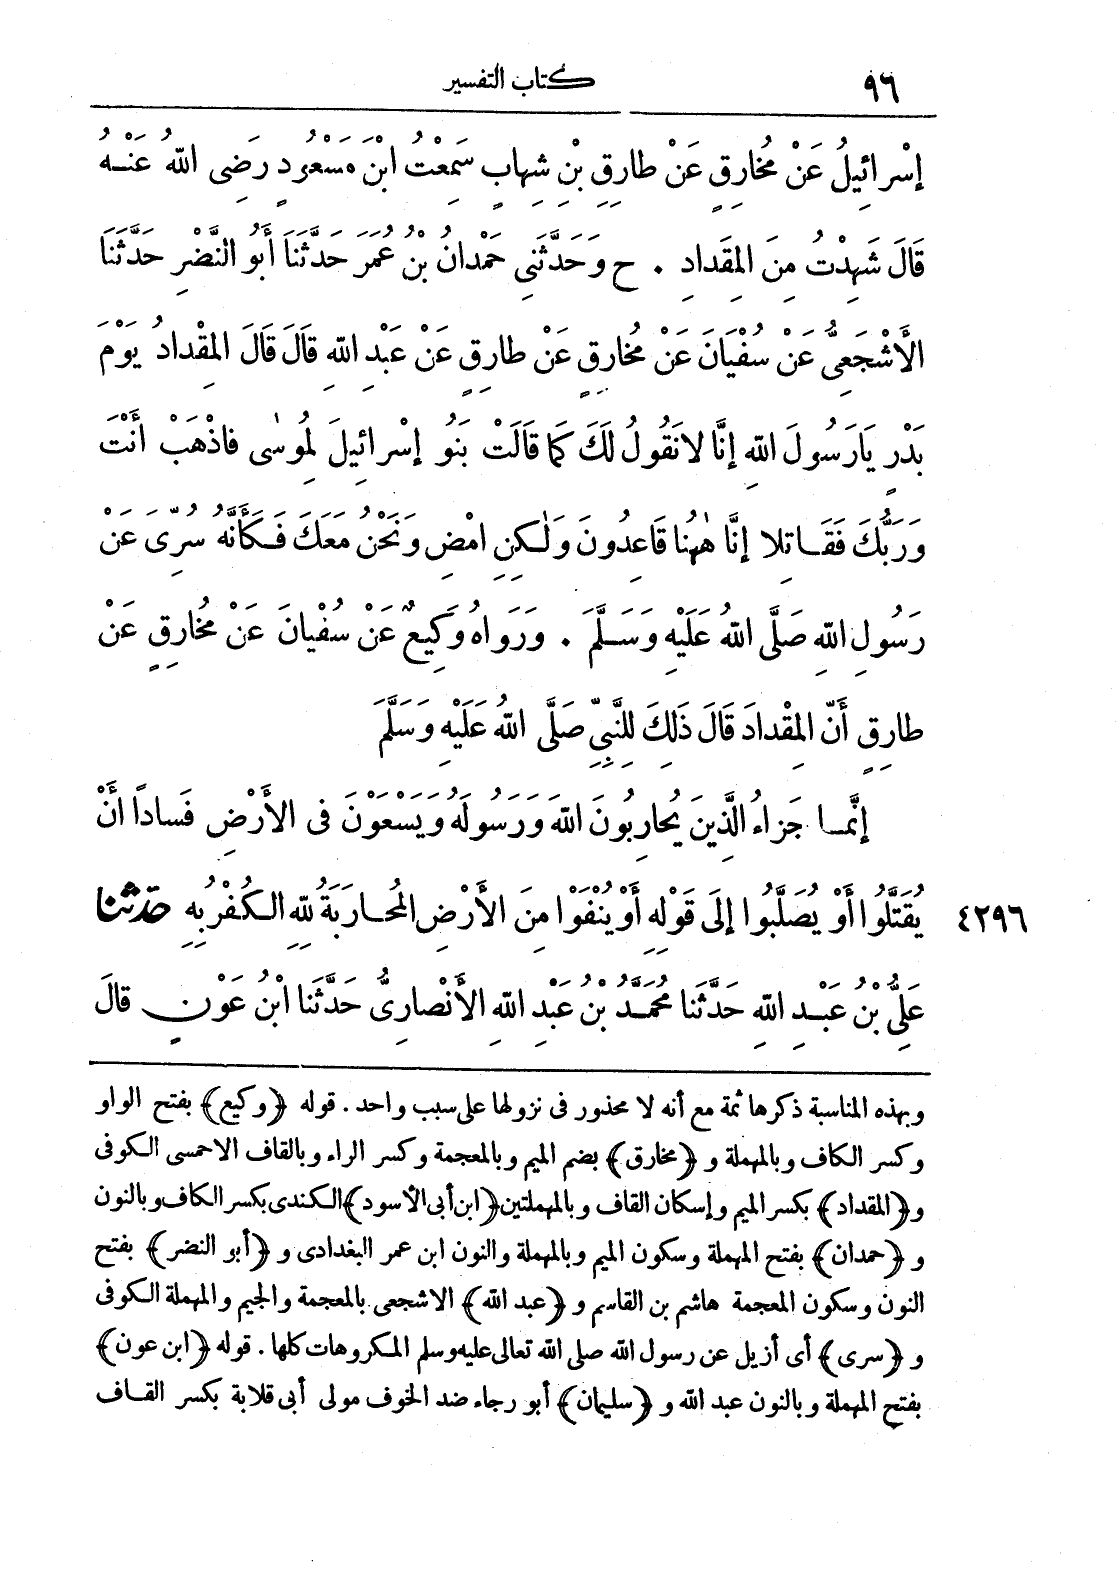 ٩٦ كتاب التفسير
إِسْرائِيلُ عَنْ مُخارِقٍ عَنْ طارِقِ بْنِ شِهابٍ سَمِعْتُ ابْنَ مَسْعُودٍ رَضِىَ اللهُ عَنْهُ
قالَ شَهِدْتُ مِنَ المِقَدادِ . ح وَحَدَّثَنِى حَمْدانُ بْنُ عُمَرَ حَدَّثَنَا أَبُو النَّضْرِ حَدَّثَنَا
الأَشْجَعِىُّ عَنْ سُفْيَانَ عَنْ مُخارِقٍ عَنْ طارِقٍ عَنْ عَبْدِ اللهِ قالَ قَالَ المِقْدادُ يَوْمَ
بَدْرٍ يَارَسُولَ اللهِ إِنَّا لانَقُولُ لَكَ كَمَا قَالَتْ بَنُو إِسْرائِيلَ لِمُوسٰى فاذْهَبْ أَنْتَ
وَرَبُّكَ فَقَاتِلا إِنَّا هٰهُنا قَاعِدُونَ وَلٰكِنِ امْضِ وَنَحْنُ مَعَكَ فَكَأَنَّهُ سُرِّىَ عَنْ
رَسُولِ اللهِ صَلَّى اللهُ عَلَيْهِ وَسَلَّمَ . وَرَواهُ وَكِيعٌ عَنْ سُفْيانَ عَنْ مُخارِقٍ عَنْ
طارِقٍ أَنَّ المِقْدادَ قالَ ذَلِكَ لِلنَّبِىِّ صَلَّى اللهُ عَلَيْهِ وَسَلَّمَ
إِنَّما جَزاءُ الَّذِينَ يُحارِبُونَ اللهَ وَرَسُولَهُ وَيَسْعَوْنَ فِى الأَرْضِ فَساداً أَنْ
٤٢٩٦ يُقَتَّلُوا أَوْ يُصَلَّبُوا إِلَى قَوْلِهِ أَوْ يُنْفَوْا مِنَ الأَرْضِ المُحارَبَةُ لِلّهِ الكُفْرُ بِهِ حَدَّثَنا
عَلِىُّ بْنُ عَبْدِ اللهِ حَدَّثَنا مُحَمَّدُ بْنُ عَبْدِ اللهِ الأَنْصارِىُّ حَدَّثَنا ابْنُ عَوْنٍ قالَ
وبهذه المناسبة ذكرها ثمة مع أنه لا محذور فى نزولها على سبب واحد . قوله ﴿وكيع﴾ بفتح الواو
وكسر الكاف وبالمهملة و ﴿مخارق﴾ بضم الميم وبالمعجمة وكسر الراء وبالقاف الاحمسى الكوفى
و﴿المقداد﴾ بكسر الميم وإسكان القاف وبالمهملتين ﴿ابن أبى الأسود﴾ الكندى بكسر الكاف وبالنون
و ﴿حمدان﴾ بفتح المهملة وسكون الميم وبالمهملة والنون ابن عمر البغدادى و ﴿أبو النضر﴾ بفتح
النون وسكون المعجمة هاشم بن القاسم و ﴿عبد الله﴾ الاشجعى بالمعجمة والجيم والمهملة الكوفى
و ﴿سرى﴾ أى أزيل عن رسول الله صلى الله تعالى عليه وسلم المكروهات كلها . قوله ﴿ابن عون﴾
بفتح المهملة وبالنون عبد الله و ﴿سليمان﴾ أبو رجاء ضد الخوف مولى أبى قلابة بكسر القاف